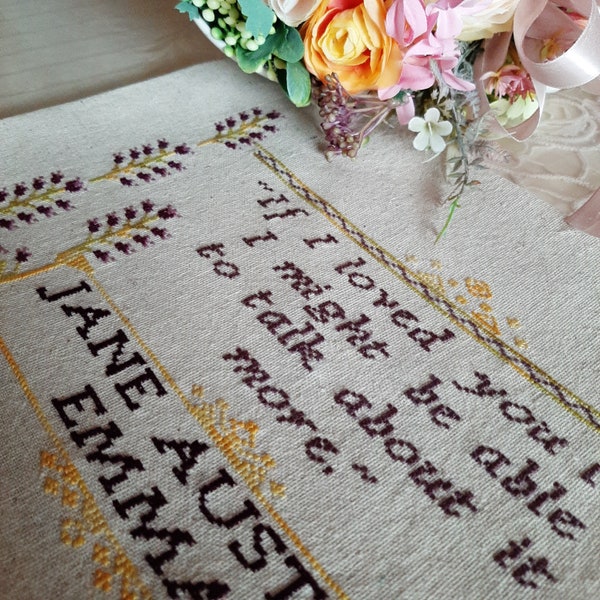 ~If I loved you
I might be able
to talk about it
more.~
JANE AUST
EMMA